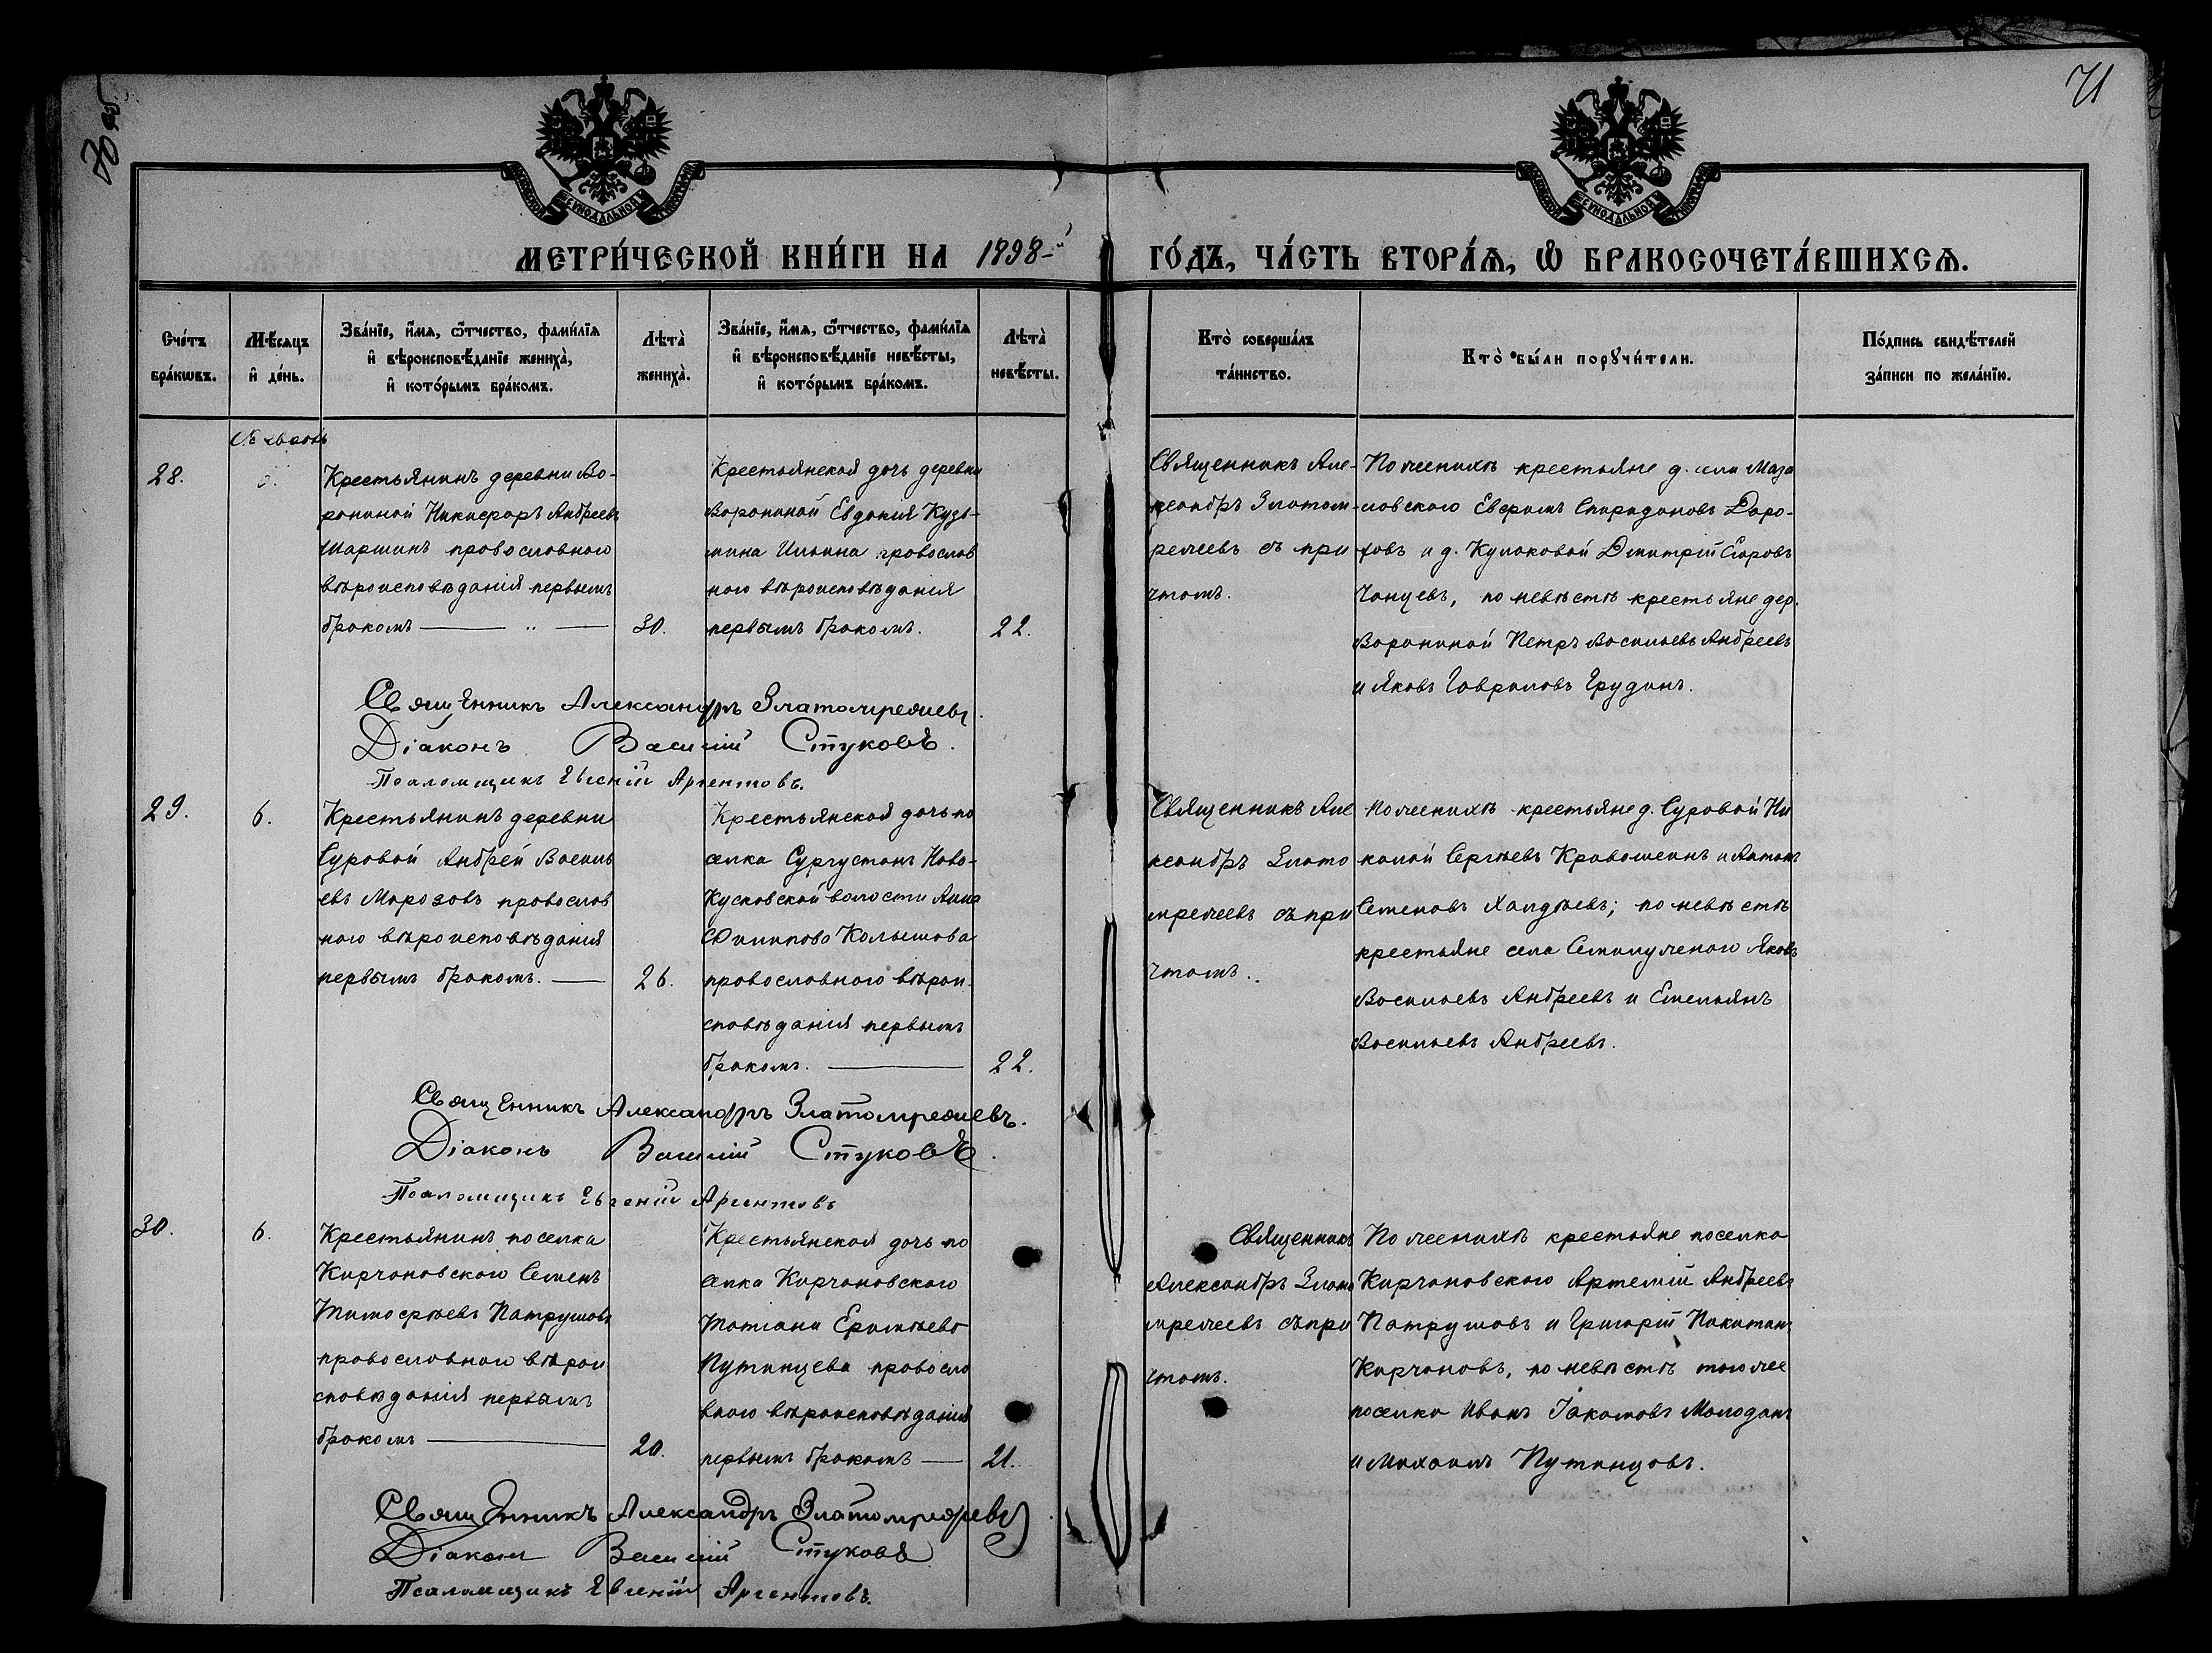 70 об.
71
МЕТРИ́ЧЕСКОЙ КНИ́ГИ НА 1898-й
ГО́ДЪ, ЧА́СТЬ ВТОРА́Я, Ѿ БРАКОСОЧЕТА́ВШИХСЯ.
Сче́тъ
бра́кѡвъ.
Мѣ́сяцъ
и҆ де́нь.
Зва́нїе, и҆́мя, ѻ҆́тчество, фами́лїя
и҆ вѣроисповѣ́данїе жениха̀,
и҆ кото́рымъ бра́комъ.
Лѣта̀
жениха̀.
Зва́нїе, и҆́мя, ѻ҆́тчество, фами́лїя
и҆ вѣроисповѣ́данїе невѣ́сты,
и҆ кото́рымъ бра́комъ.
Лѣта̀
невѣ́сты.
Кто̀ соверша́лъ
та́инство.
Кто̀ бы́ли порꙋчи́тели.
По́дпись свидѣ́телей
за́писи по жела́нїю.
28.
Крестьянинъ деревни Во-
рониной Никифоръ Андреевъ
Шаршинъ православнаго
вѣроисповѣданія первымъ
бракомъ
30.
Крестьянская дочь деревни
Ворониной Евдокія Кузь-
мина Ильина православ
наго вѣроисповѣданія
первымъ бракомъ.
22.
Священникъ Але-
ксандръ Златом-
режевъ съ при
чтомъ.
По женихѣ крестьяне д. села Маза
ловскаго Евфимъ Спиридоновъ Доро-
ховъ и д. Кулаковой Дмитрій Егоровъ
Чанцевъ, по невѣстѣ крестьяне дер.
Ворониной Петръ Васильевъ Андреевъ
и Яковъ Гавриловъ Грудинъ.
Священникъ Александръ Златомрежевъ.
Діаконъ Василій Стуковъ.
Псаломщикъ Евгеній Аргентовъ.
29.
6.
Крестьянинъ деревни
Суровой Андрей Василь
евъ Морозовъ православ
наго вѣроисповѣданія
первымъ бракомъ.
26.
Крестьянская дочь по
селка Сургустанъ Ново-
Кусковской волости Анна
Филиппова Колышова
православнаго вѣрои
сповѣданія первымъ
бракомъ.
22.
Священникъ Але
ксандръ Злато
мрежевъ съ при
чтомъ.
По женихѣ крестьяне д. Суровой Ни
колай Сергѣевъ Кравошеинъ и Антонъ
Семеновъ Халдѣевъ; по невѣстѣ
крестьяне села Семилужнаго Яковъ
Васильевъ Андреевъ и Емельянъ
Васильевъ Андреевъ.
Священникъ Александръ Златомрежевъ.
Діаконъ Василій Стуковъ.
Псаломщикъ Евгеній Аргентовъ
30.
6.
Крестьянинъ поселка
Кирчановскаго Семенъ
Тимофѣевъ Патрушовъ
православнаго вѣрои
сповѣданія первымъ
бракомъ
20.
Крестьянская дочь по
селка Кирчановскаго
Татіана Ефимѣева
Путинцева правосла
внаго вѣроисповѣданія
первымъ бракомъ
21.
Священникъ
Александръ Злато
мрежевъ съ при
чтомъ.
По женихѣ крестьяне поселка
Кирчановскаго Артемій Андреевъ
Патрушовъ и Григорій Никитинъ
Кирчановъ, по невѣстѣ того же
поселка Иванъ Іакимовъ Молодинъ
и Михаилъ Путинцовъ.
Священникъ Александръ Златомрежевъ
Діаконъ Василій Стуковъ
Псаломщикъ Евгеній Аргентовъ.